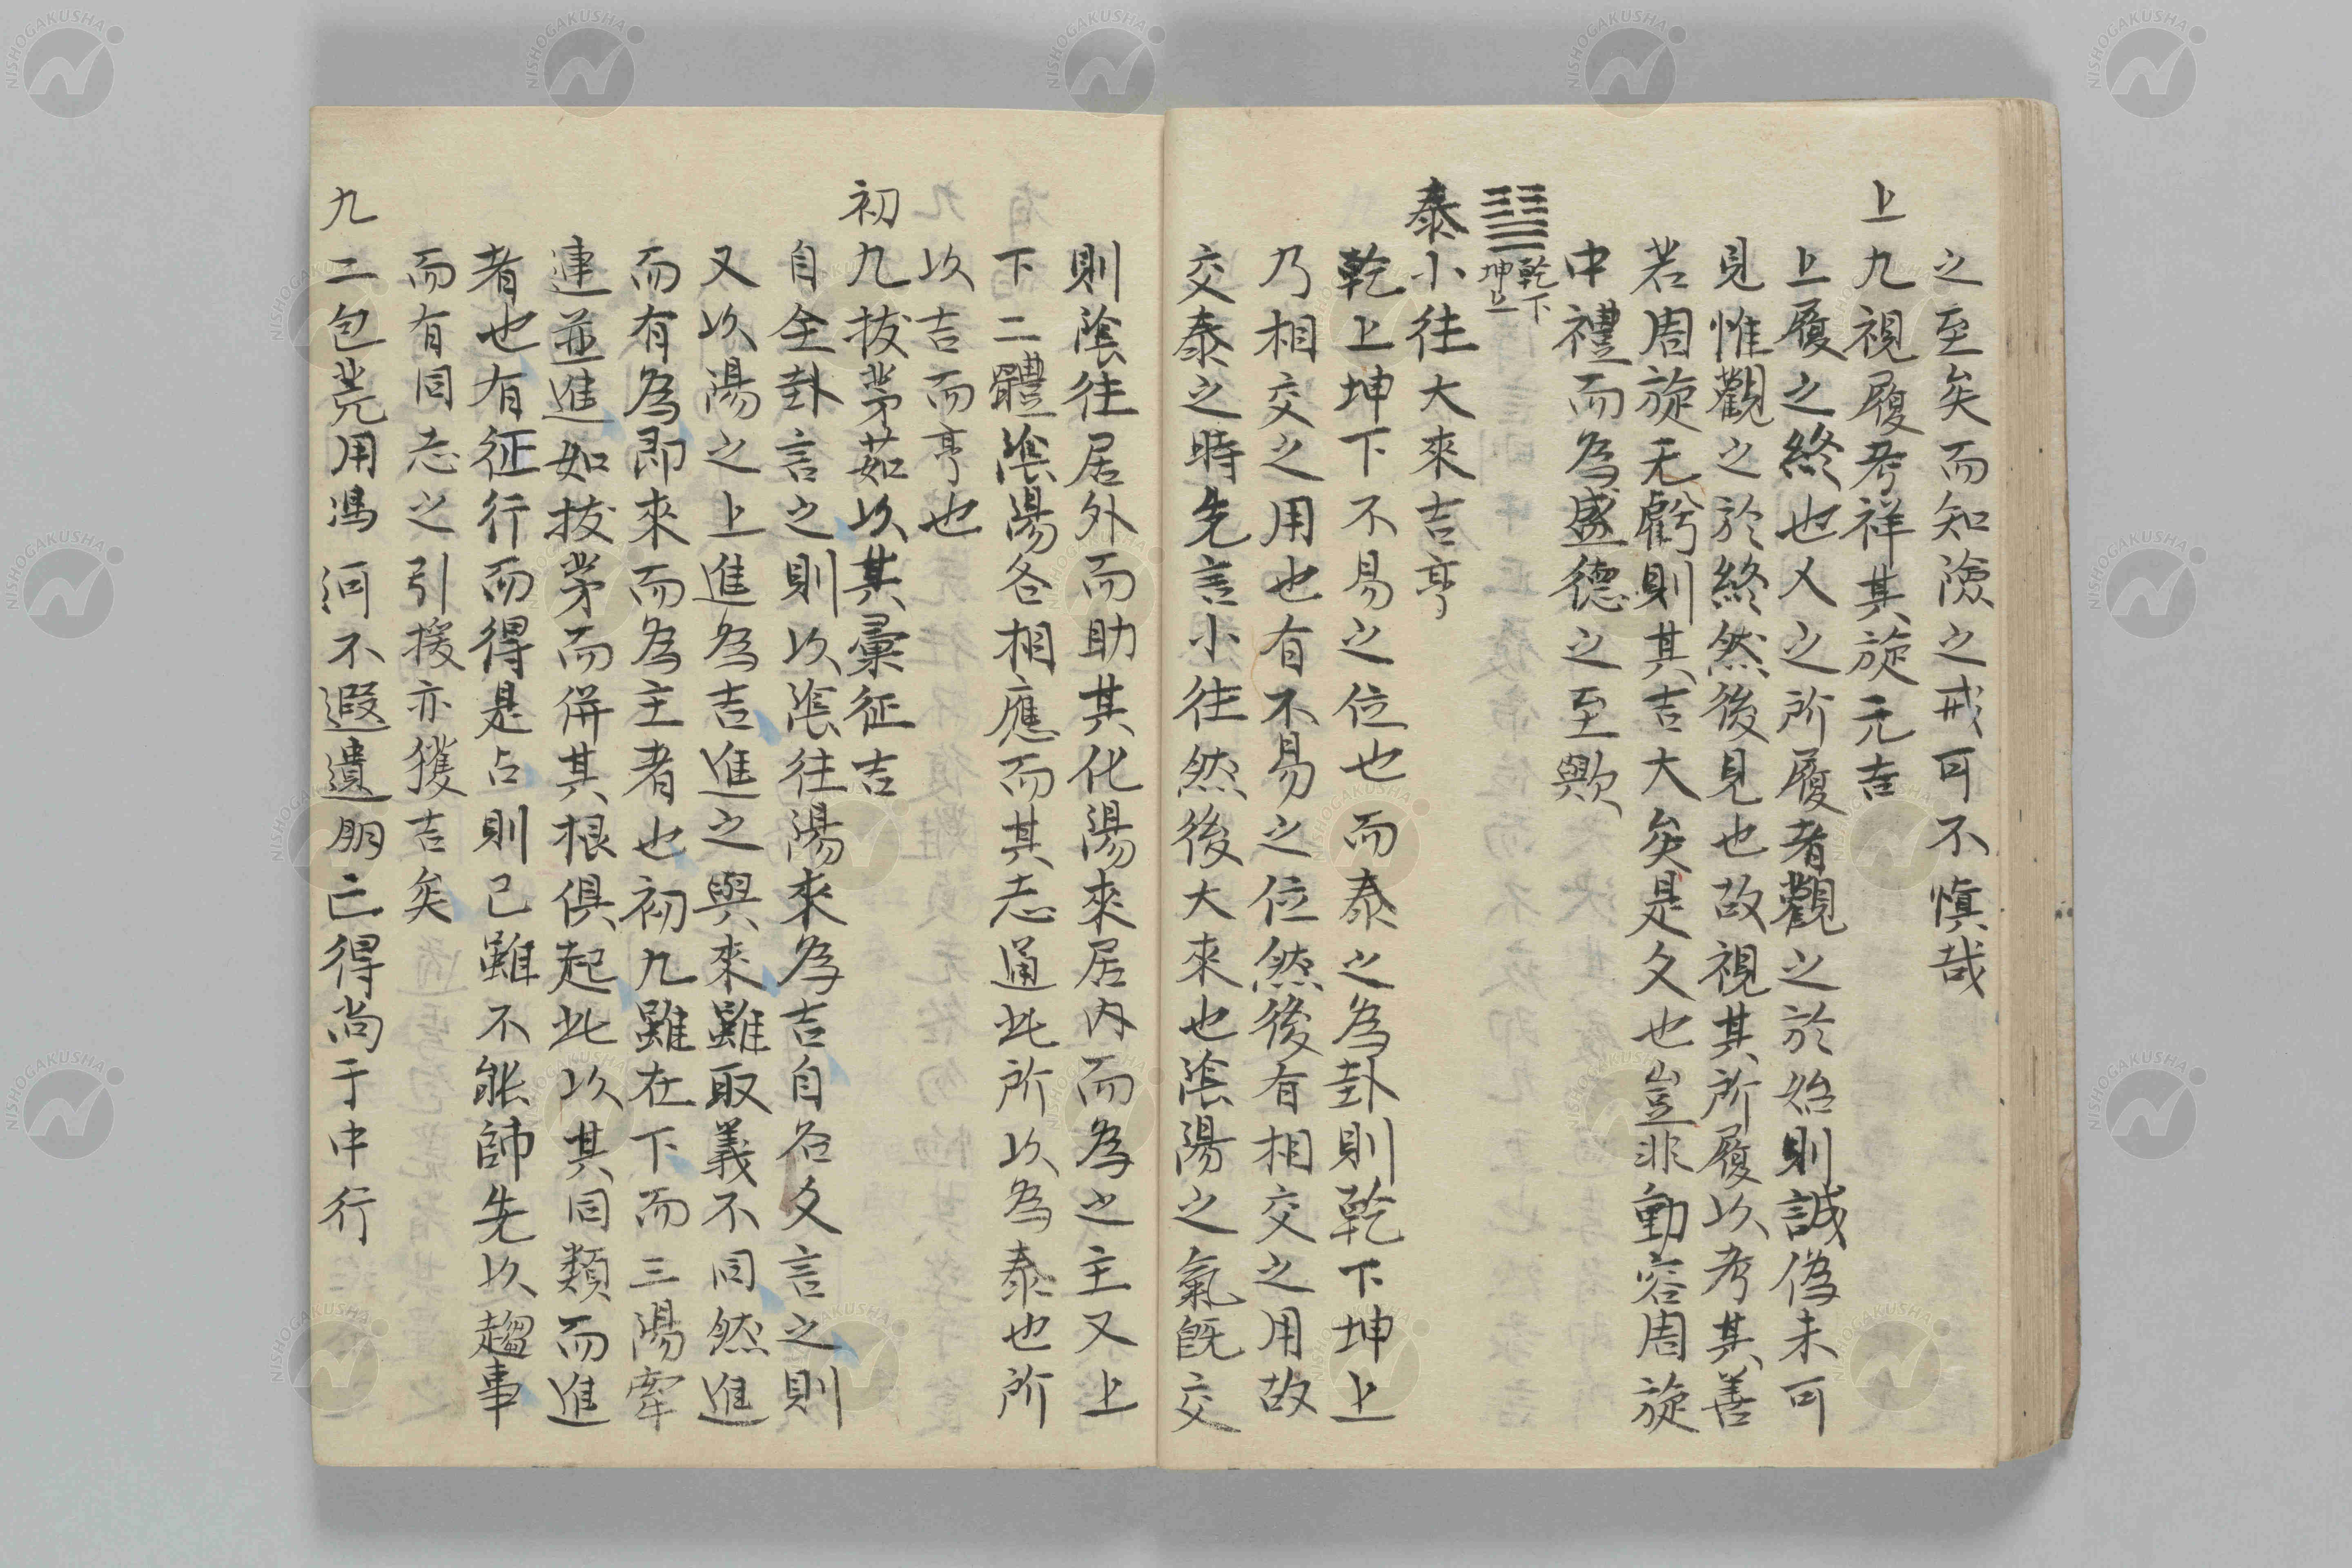 之至矣而知險之戒可不慎哉
上九視履考祥其旋元吉
上履之終也人之所履者觀之於始則誠偽未可
見惟觀之於終然後見也故視其所履以考其善
若周旋无虧則其吉大矣是爻也豈非動容周旋
中禮而為盛德之至歟
乾下坤上
泰小往大來吉亨
乾上坤下不易之位也而泰之為卦則乾下坤上
乃相交之用也有不易之位然後有相交之用故
交泰之時先言小往然後大來也陰陽之氣既交
則陰往居外而助其化陽來居内而為之主又上
下二體陰陽各相應而其志通此所以為泰也所
以吉而亨也
初九拔茅茹以其彙征吉
自全卦言之則以陰往陽來為吉自各爻言之則
又以陽之上進為吉進之與來雖取義不同然進
而有為即來而為主者也初九雖在下而三陽牽
連並進如拔茅而併其根俱起此以其同類而進
者也有征行而得是占則已雖不能帥先以趨事
而有同志之引援亦獲吉矣
九二包荒用馮河不遐遺朋亡得尚于中行
NISHOGAKUSHA